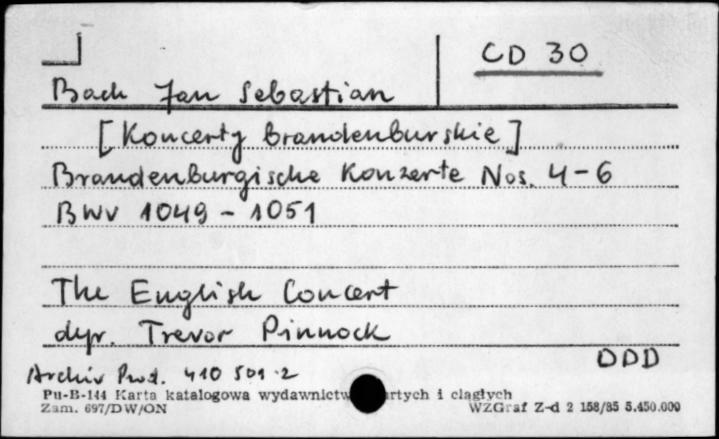 CD 30
Bach Jan Sebastian
[Koncerty Brandenburskie]
Brandenburgische Konzerte Nos. 4-6
BWV 1049 - 1051
The English Concert
dyr. Trevor Pinnock
DDD
Archiv Prod. 410 501-2
Pu-B-144 Karta katalogowa wydawnictw rtych i ciągłych
Zam. 697/DW/ON WZGraf Z-d 2 158/85 5.450.000